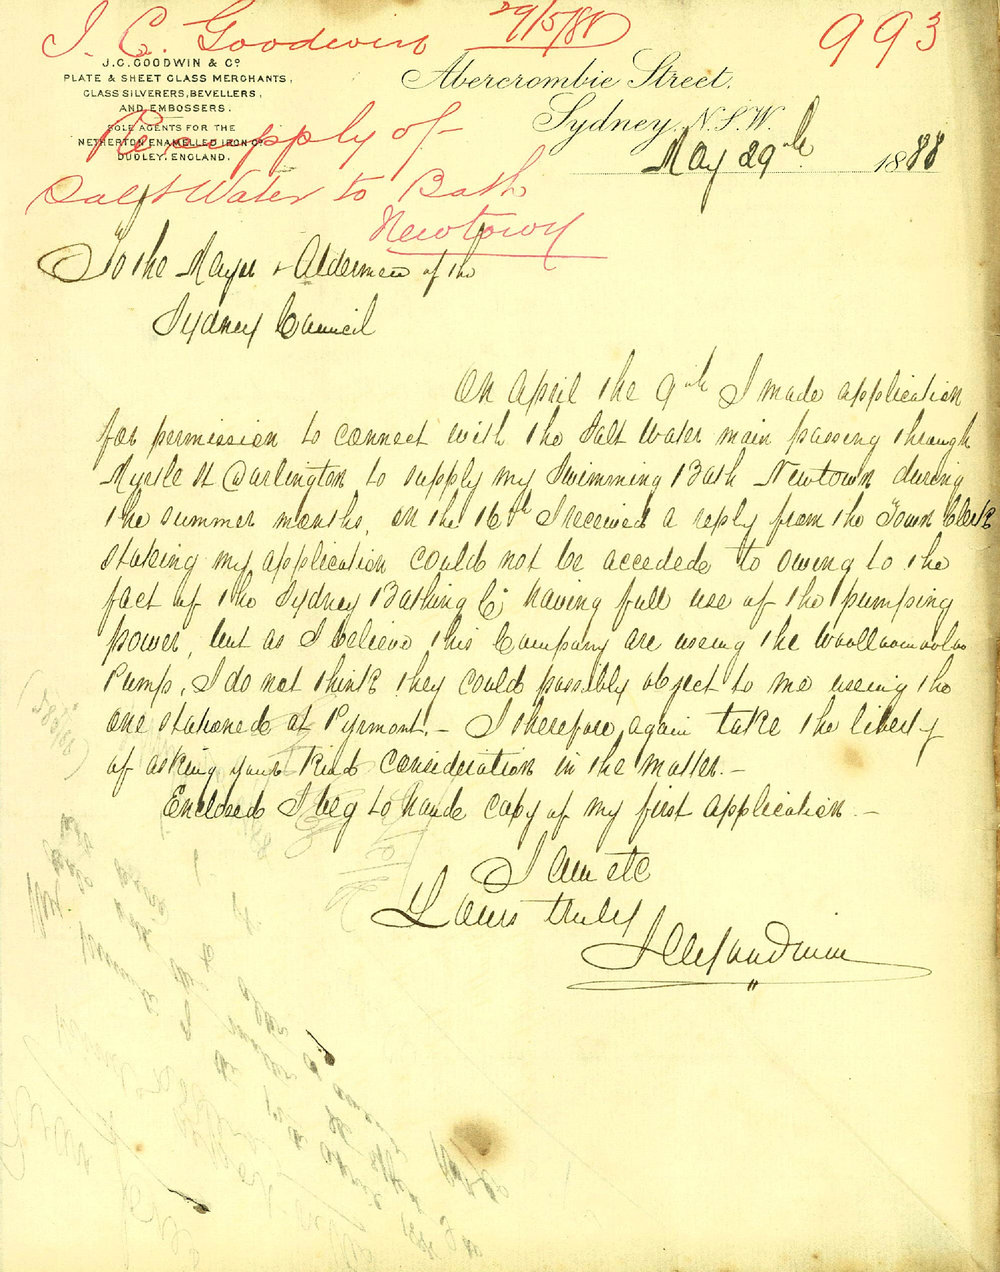 J. C. Goodwin
29/5/88
993
J.C. GOODWIN & Co
PLATE & SHEET GLASS MERCHANTS,
GLASS SILVERERS, BEVELLERS,
AND EMBOSSERS.
SOLE AGENTS FOR THE
NETHERTON ENAMELLED IRON Co
DUDLEY, ENGLAND.
Abercrombie Street,
Sydney, N.S.W.
May 29th 1888
Re supply of
Salt Water to Bath
Newtown
To the Mayor & Aldermen of the
Sydney Council
On April the 9th I made application
for permission to connect with the Salt Water main passing through
Myrtle St Darlington to supply my Swimming Bath Newtown during
the summer months, on the 16th I received a reply from the Town Clerk
stating my application could not be accedede to owing to the
fact of the Sydney Bathing Co having full use of the pumping
power, but as I believe this Company are useing the Woolloomooloo
Pump, I do not think they could possibly object to me useing the
one stationed at Pyrmont. – I therefore again take the liberty
of asking your kind consideration in the matter. –
Enclosed I beg to hand copy of my first application. –
I am etc
Yours truly
J C Goodwin